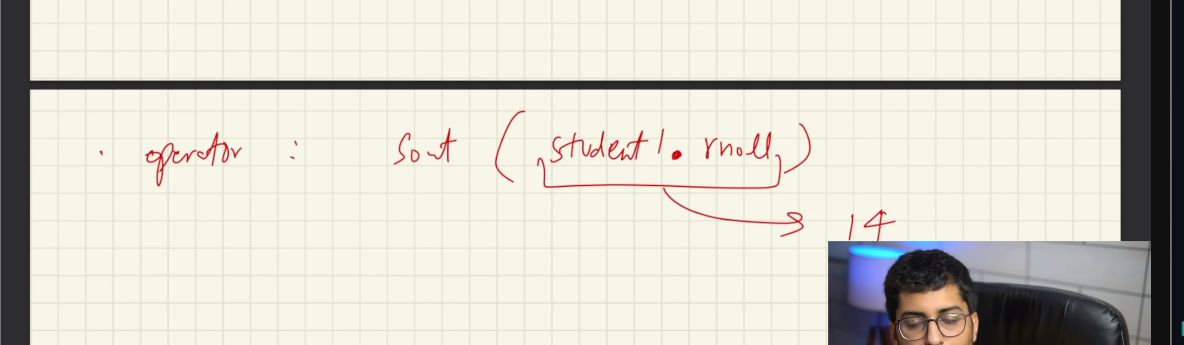 . operator : Sout ( student1. rnoll )
14